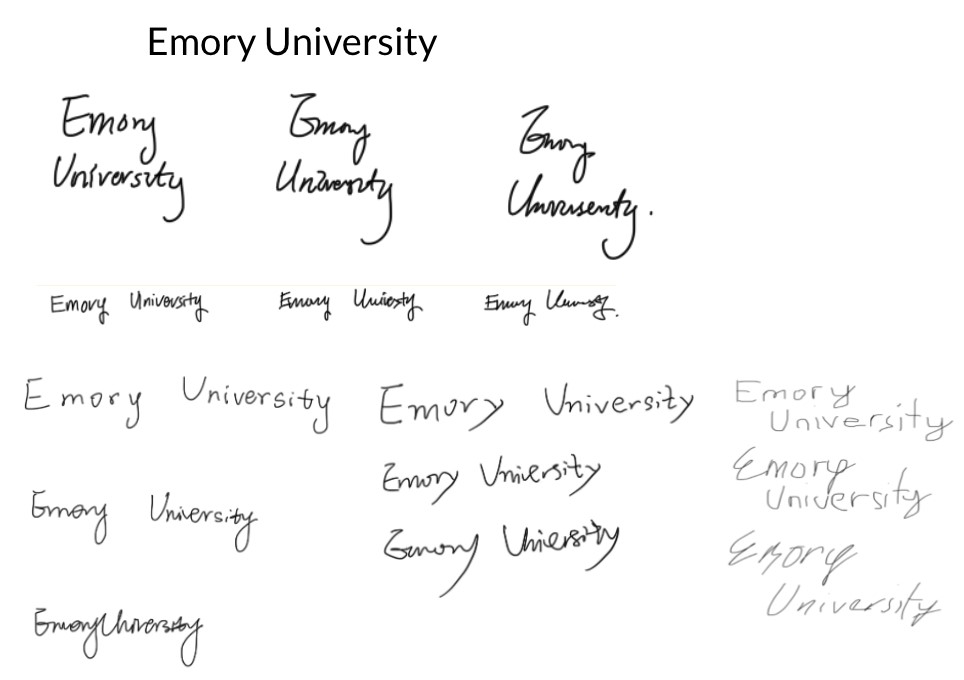 Emory University
Emory
University
Emory
University
Emory
University.
Emory University
Emory University
Emory University.
Emory University
Emory University
Emory
University
Emory University
Emory
University
Emory University
Emory University
Emory
University
Emory University